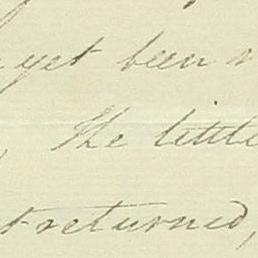 yet been
, The little
returned,